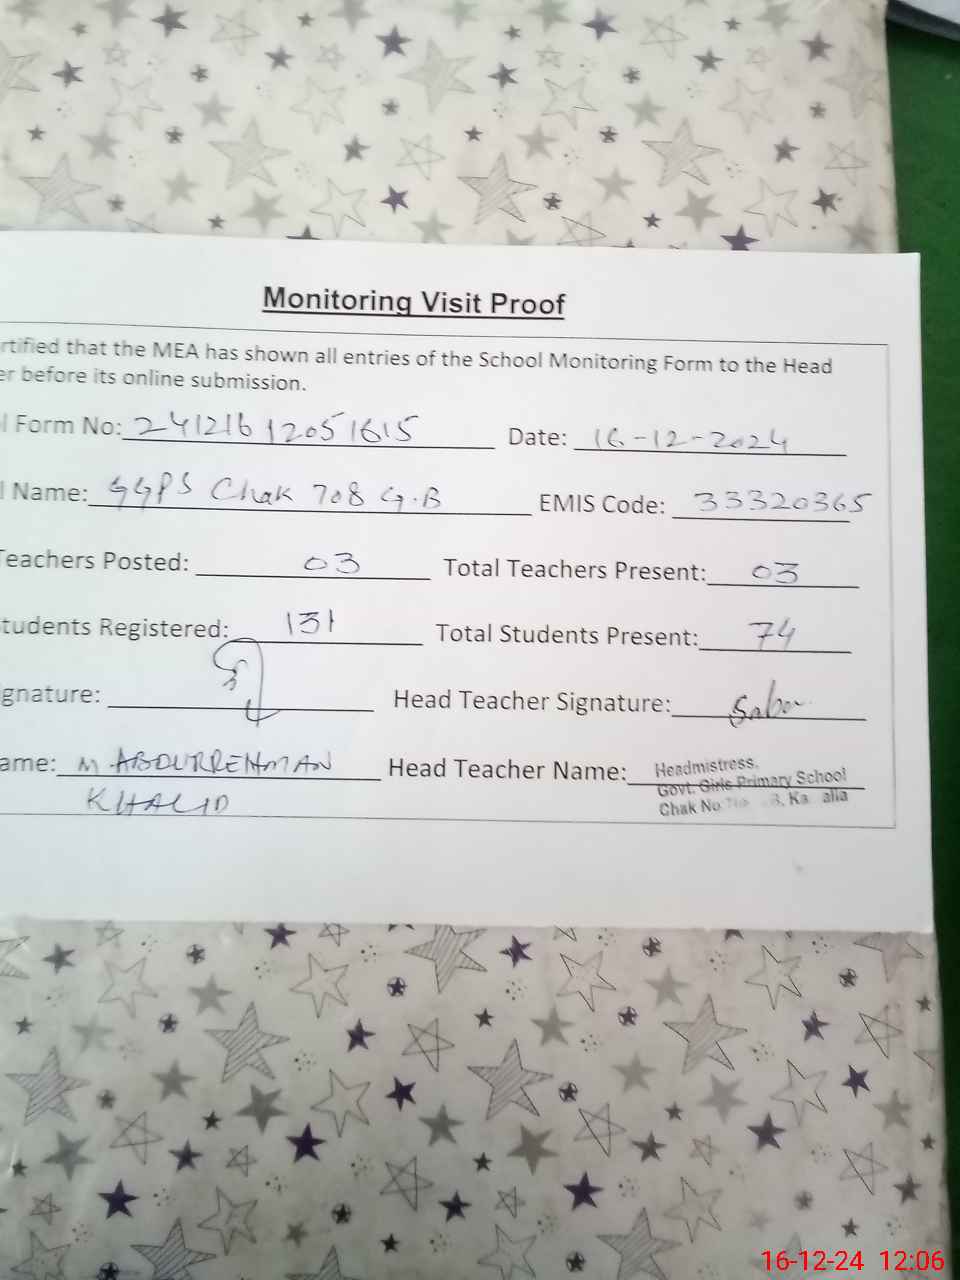 Monitoring Visit Proof
rtified that the MEA has shown all entries of the School Monitoring Form to the Head
er before its online submission.
l Form No: 24121612051615 Date: 16-12-2024
l Name: GGPS Chak 708 G.B EMIS Code: 33320365
Teachers Posted: 03 Total Teachers Present: 03
tudents Registered: 131 Total Students Present: 74
ignature: Head Teacher Signature:
ame: M ABDURREHMAN Head Teacher Name: Headmistress,
KHALID Govt. Girls Primary School
Chak No
16-12-24 12:06